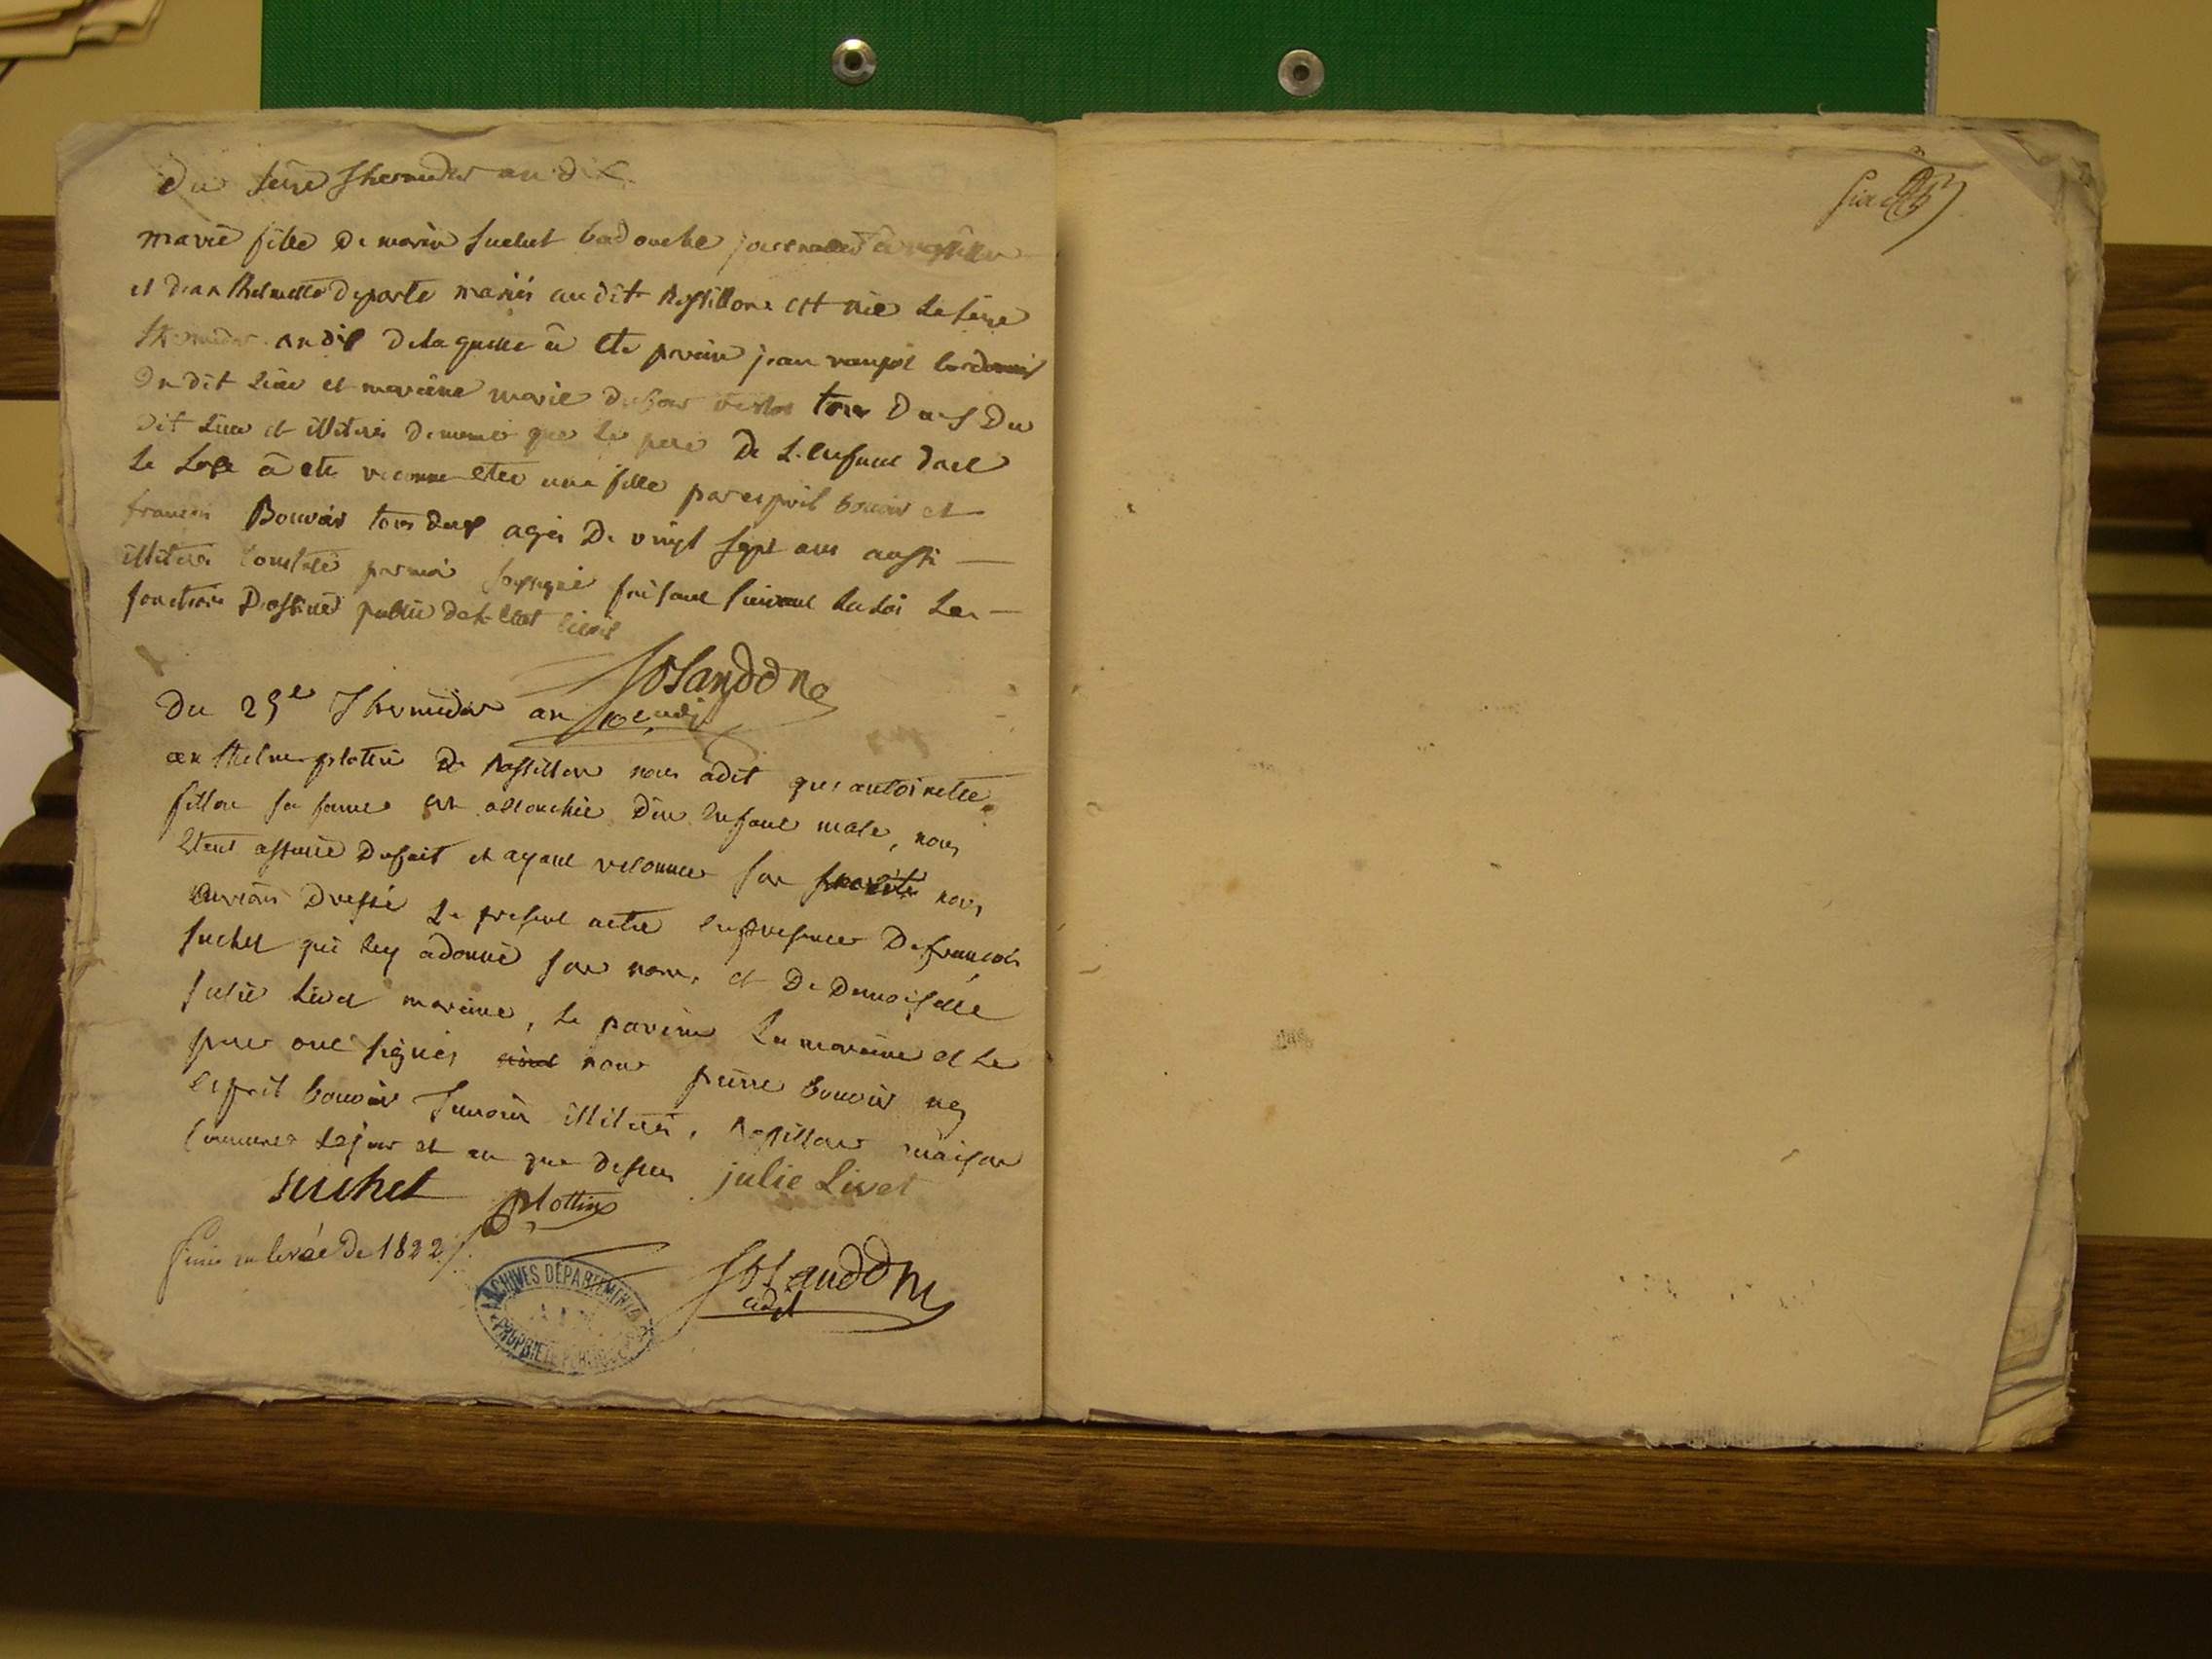 Du seize thermidor an dix
marie fille de marin suchet badouche
et d'anthelmette deporte mariés audit Rossillon est née le seize
thermidor an dix de laquelle à été parain jean
du dit lieu et maraine marie tous deux du
dit lieu et illiterés de meme que le pere de l'enfant duel
le sexe à eté reconnu etre une fille par esprit bouvier et
françois Bouvier tous deux agés de vingt sept ans aussi
illiterés constaté par moi soussigné faisant suivant la loi les
fonctions d'officier public de l'etat civil
Du 25e thermidor an 10e
anthelme plottin de Rossillon nous a dit que antoinette
fillon sa famme est accouchée d'un enfant male, nous
etant assurré du fait et ayant reconnu son nous
avons dressé le present acte en presence de françois
suchet qui luy a donné son nom, et de demoiselle
julie Livet maraine, le parein la maraine et le
pere ont signés non pierre bouvier ney
esprit bouvier temoin illiterés, Rossillon maison
commune le jour et an que dessus
suchet plottin julie Livet
de 1822
ARCHIVES DÉPARTEMENTALES
AIN
PROPRIÉTÉ PUBLIQUE